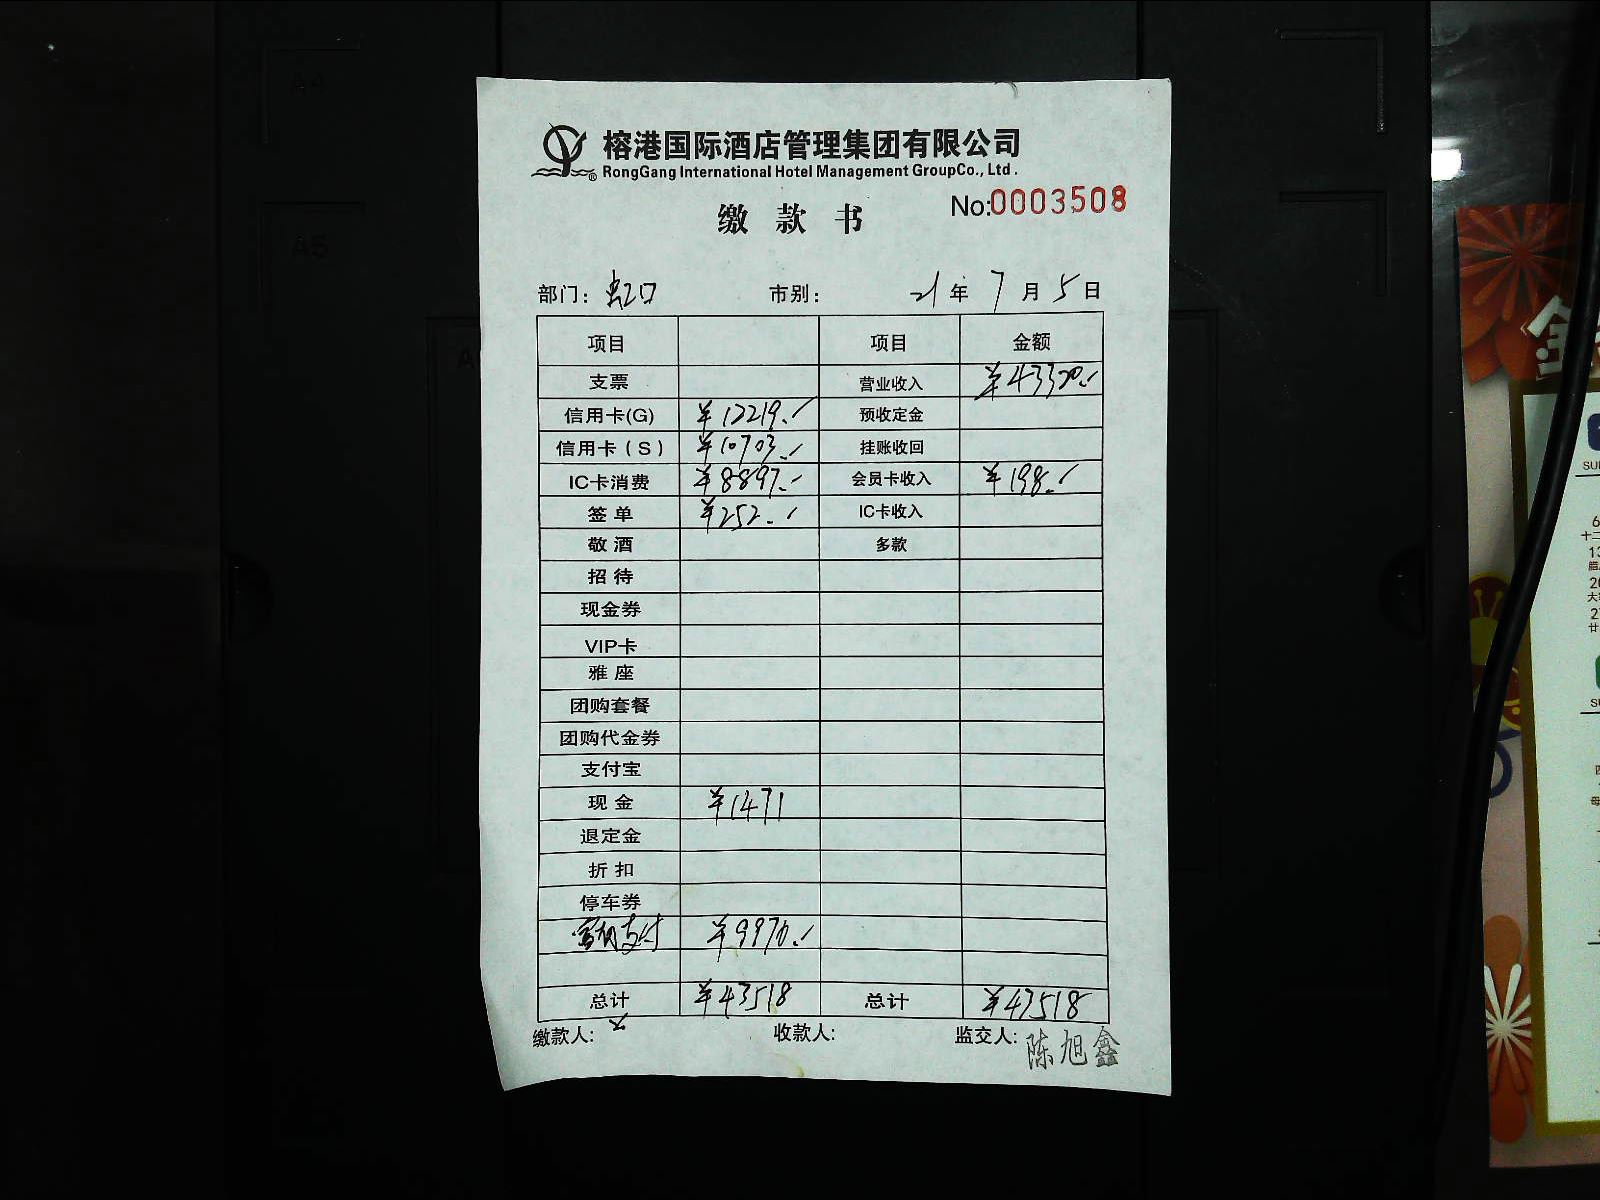 榕港国际酒店管理集团有限公司
RongGang International Hotel Management GroupCo., Ltd.
缴款书 No:0003508
部门: 虹口 市别: 21年 7月 5日
项目 项目 金额
支票 营业收入 ¥43320.-
信用卡(G) ¥12219.- 预收定金
信用卡(S) ¥10703.- 挂账收回
IC卡消费 ¥8897.- 会员卡收入 ¥198.-
签单 ¥252.- IC卡收入
敬酒 多款
招待
现金券
VIP卡
雅座
团购套餐
团购代金券
支付宝
现金 ¥1471
退定金
折扣
停车券
支付 ¥9970.-
总计 ¥43518 总计 ¥43518
缴款人: 收款人: 监交人: 陈旭鑫